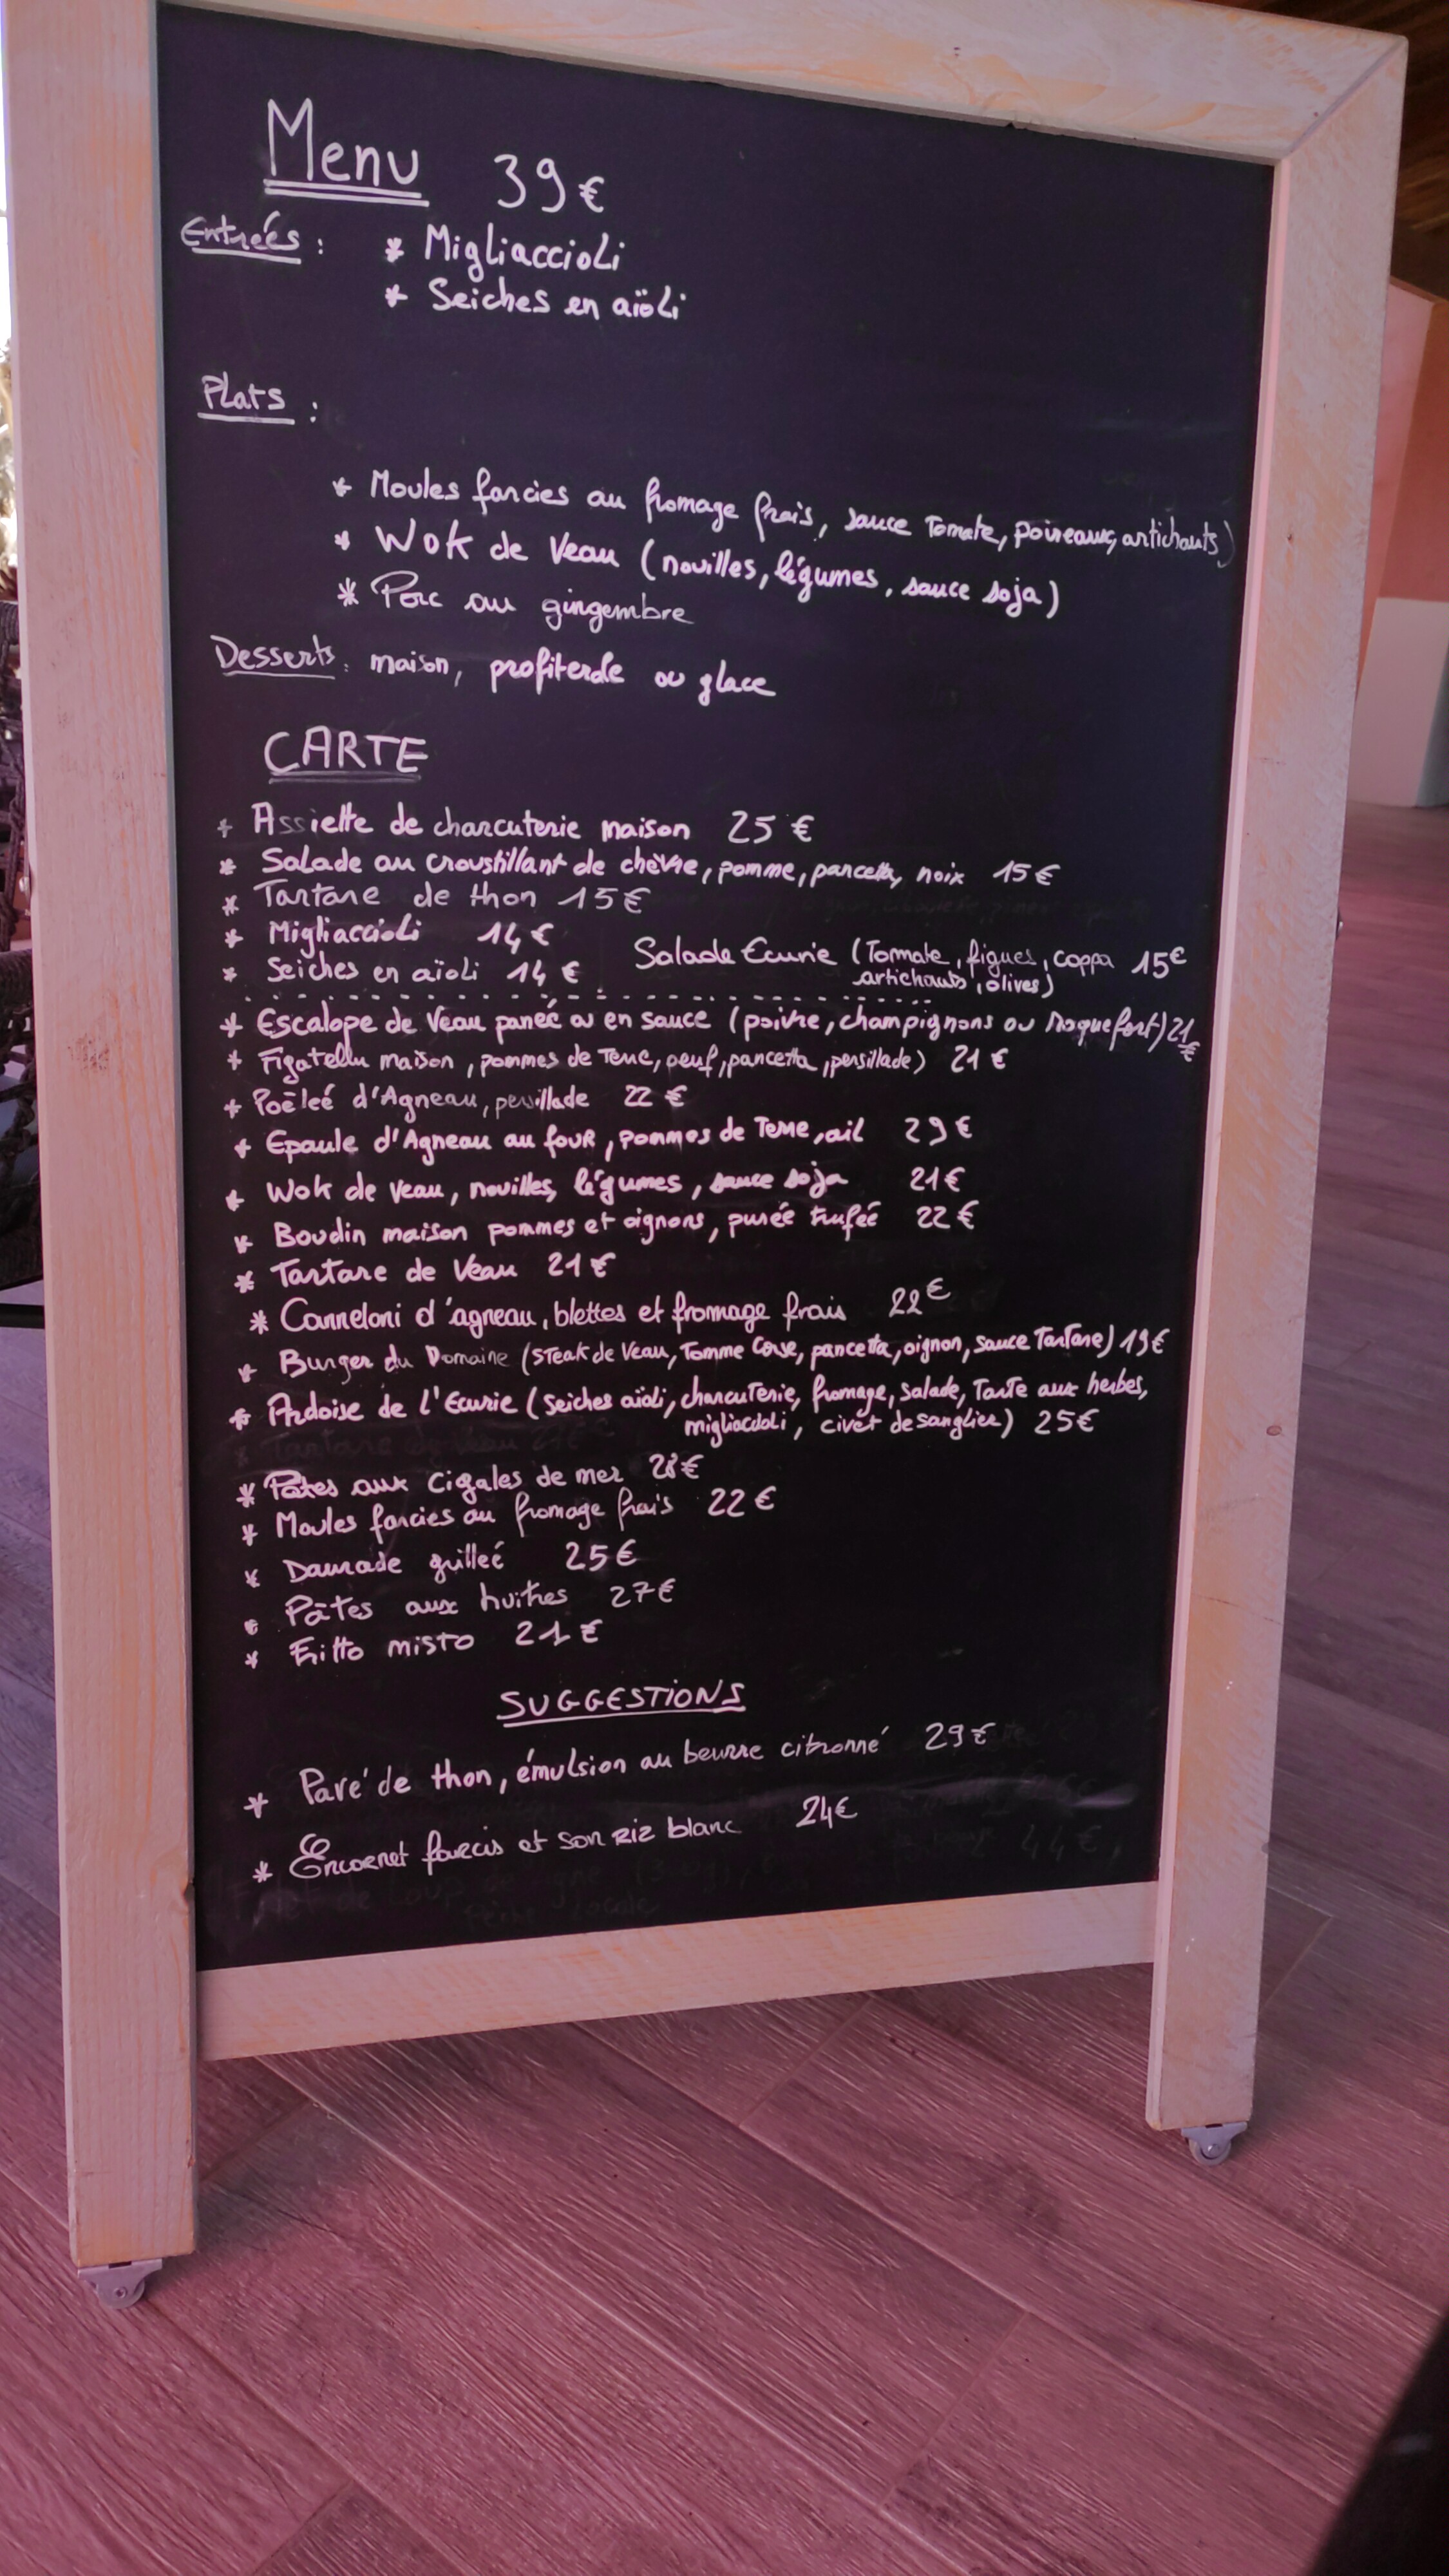 Menu 39€
Entrées : * Migliaccioli
* Seiches en aïoli
Plats :
* Moules farcies au fromage frais, sauce Tomate, poireaux, artichauts)
* Wok de Veau (nouilles, légumes, sauce soja)
* Porc au gingembre
Desserts : maison, profiterole ou glace
CARTE
* Assiette de charcuterie maison 25 €
* Salade au croustillant de chèvre, pomme, pancetta, noix 15€
* Tartare de thon 15€
* Migliaccioli 14€
* Seiches en aïoli 14€
Salade Ecurie (Tomate, figues, coppa 15€
artichauts, olives)
* Escalope de Veau panée ou en sauce (poivre, champignons ou Roquefort) 21€
* Figatellu maison, pommes de Terre, oeuf, pancetta, persillade) 21€
* Poêleé d'Agneau, persillade 22€
* Epaule d'Agneau au four, pommes de Terre, ail 29€
* Wok de veau, nouilles, légumes, sauce soja 21€
* Boudin maison pommes et oignons, purée truféé 22€
* Tartare de Veau 21€
* Canneloni d'agneau, blettes et fromage frais 22€
* Burger du Domaine (steak de Veau, Tomme Corse, pancetta, oignon, sauce Tartare) 19€
* Ardoise de l'Ecurie (seiches aïoli, charcuterie, fromage, salade, Tarte aux herbes,
migliaccioli, civet de sanglier) 25€
* Pâtes aux Cigales de mer 28€
* Moules farcies au fromage frais 22€
* Daurade grilleé 25€
* Pâtes aux huitres 27€
* Fritto misto 21€
SUGGESTIONS
* Pavé de thon, émulsion au beurre citronné 29€
* Encornet farcis et son riz blanc 24€